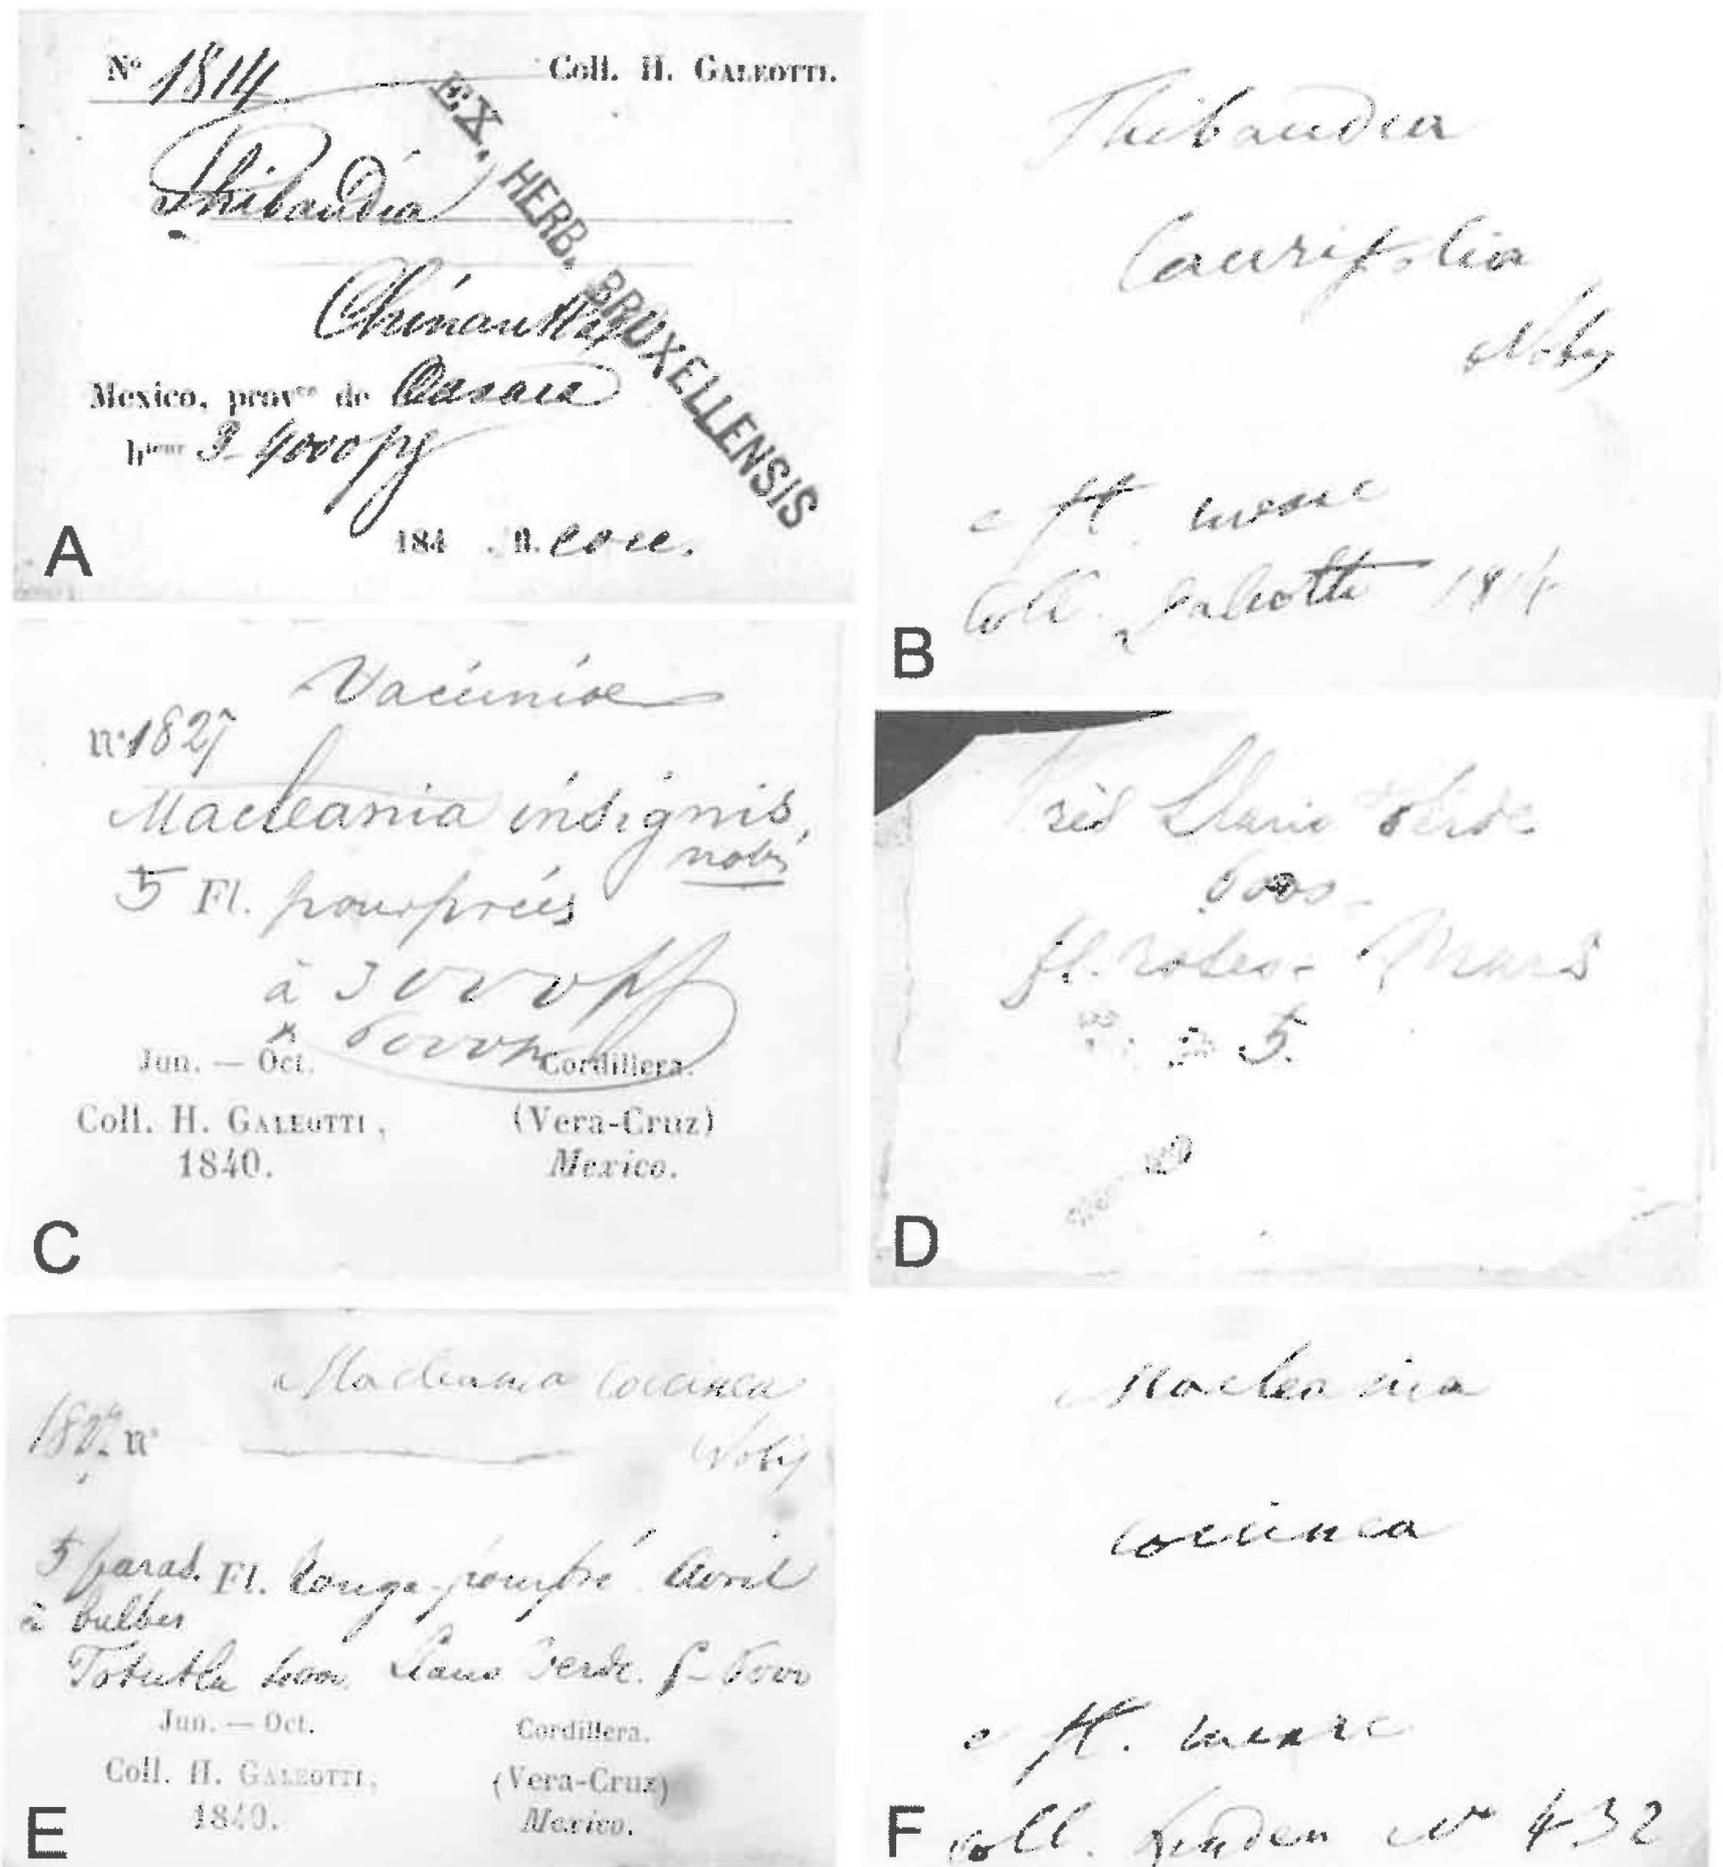 Nº 1814
Coll. H. GALEOTTI.
EX. HERB. BRUXELLENSIS
Thibaudia
Chinantla
Mexico, prov.ce de Oaxaca
h.teur 3-4000 pg
184 . fl. cocc.
A
Thibaudia
laurifolia
Nobis
e fl. mexic
Coll. Galeotti 1814
B
Vacciniae
nº 1827
Macleania insignis,
nobis
5 Fl. pourprées
à 3000 pg
à 6000 p
Jun. — Oct.
Cordillera.
Coll. H. GALEOTTI,
(Vera-Cruz)
1840.
Mexico.
C
Llano Verde
6000
fl. Mars
5.
D
Macleania coccinea
nº
Nobis
5 paras. Fl. rouge-pourpré Avril
à bulbes
Totutla Llano Verde. 5-6000
Jun. — Oct.
Cordillera.
Coll. H. GALEOTTI,
(Vera-Cruz)
1840.
Mexico.
E
Macleania
coccinea
e fl. mexic
coll. Linden Nº 432
F